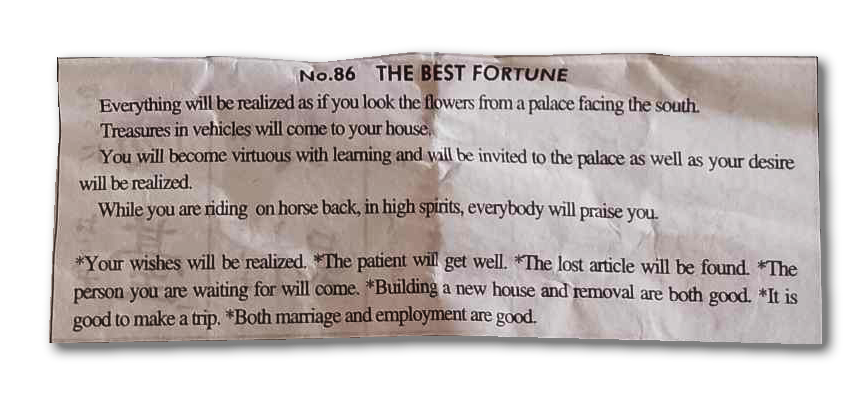 No.86 THE BEST FORTUNE
Everything will be realized as if you look the flowers from a palace facing the south.
Treasures in vehicles will come to your house.
You will become virtuous with learning and will be invited to the palace as well as your desire
will be realized.
While you are riding on horse back, in high spirits, everybody will praise you.
*Your wishes will be realized. *The patient will get well. *The lost article will be found. *The
person you are waiting for will come. *Building a new house and removal are both good. *It is
good to make a trip. *Both marriage and employment are good.